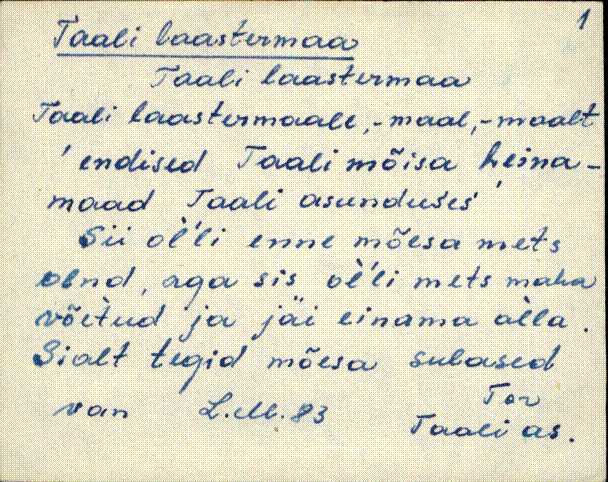 1
Taali laastermaa
Taali laastermaa
Taali laastermaale, -maal, -maalt
'endised Taali mõisa heina-
maad Taali asunduses'
Sii oĺ́li enne mõesa mets
olnd, aga sis oĺ́li mets maha
võetud ja jäi einama alla.
Sialt tegid mõesa sulased
van L.M. 83 Tor
Taali as.